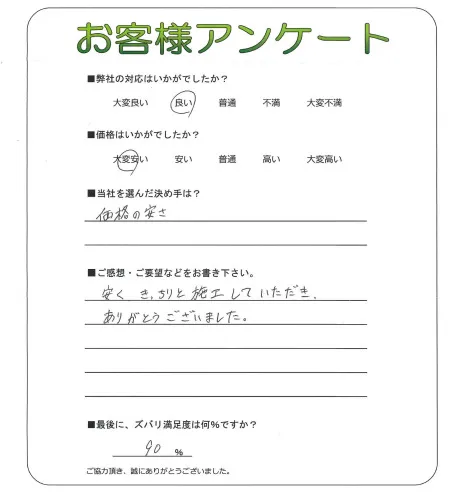 お客様アンケート
■弊社の対応はいかがでしたか？
大変良い 良い 普通 不満 大変不満
■価格はいかがでしたか？
大変安い 安い 普通 高い 大変高い
■当社を選んだ決め手は？
価格の安さ
■ご感想・ご要望などをお書き下さい。
安く きっちりと施工していただき、
ありがとうございました。
■最後に、ズバリ満足度は何％ですか？
90 ％
ご協力頂き、誠にありがとうございました。